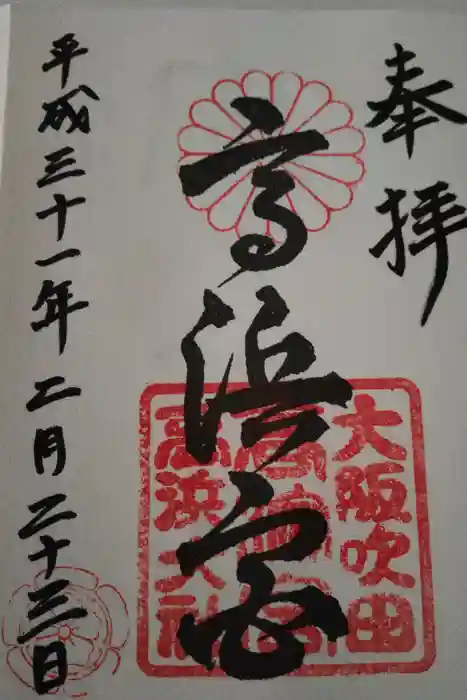 奉拝
高浜宮
大阪吹田
高浜宮
高浜大社
平成三十一年二月二十三日